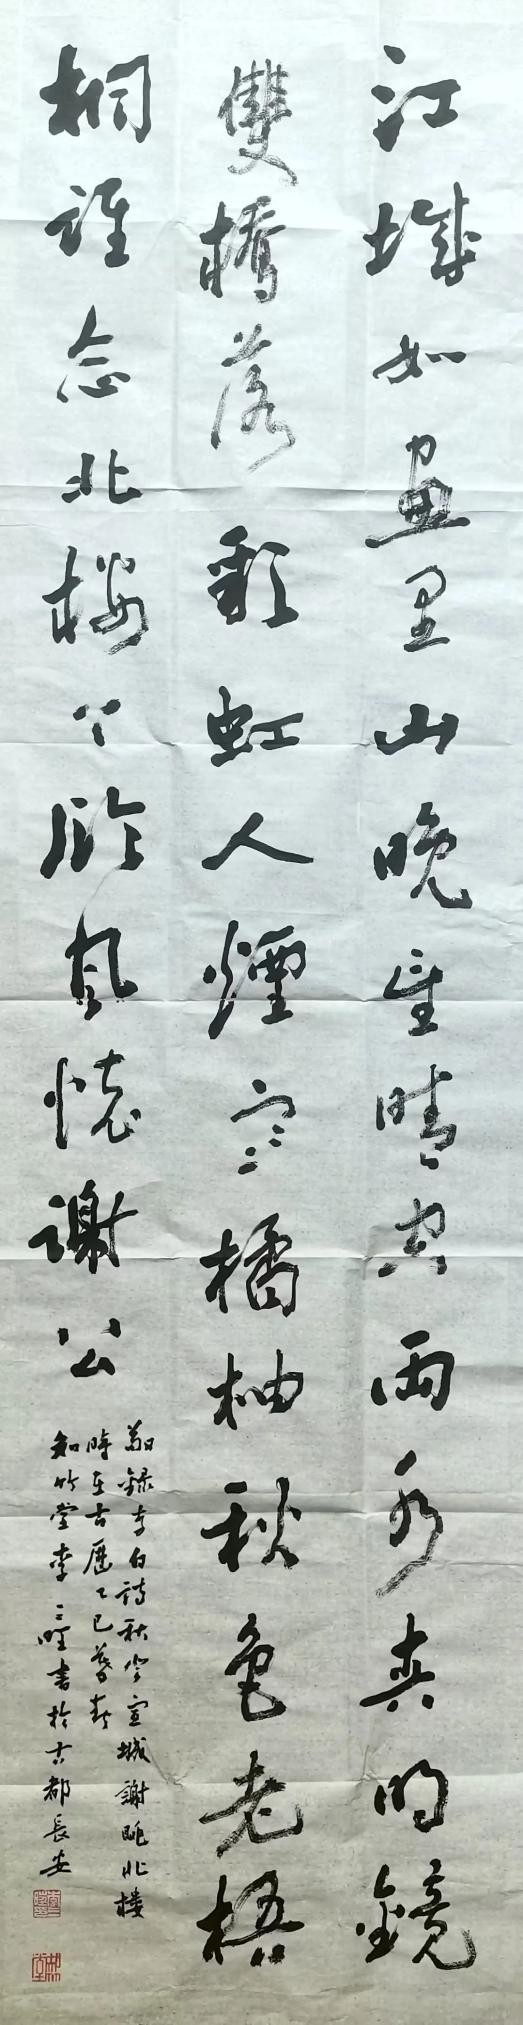 江城如畫里山晚望晴空兩水夾明鏡
雙橋落彩虹人煙寒橘柚秋色老梧
桐誰念北樓上臨風懷謝公
敬録李白詩秋登宣城謝眺北樓
時在古歷乙巳暮春
知竹堂李三書於古都長安